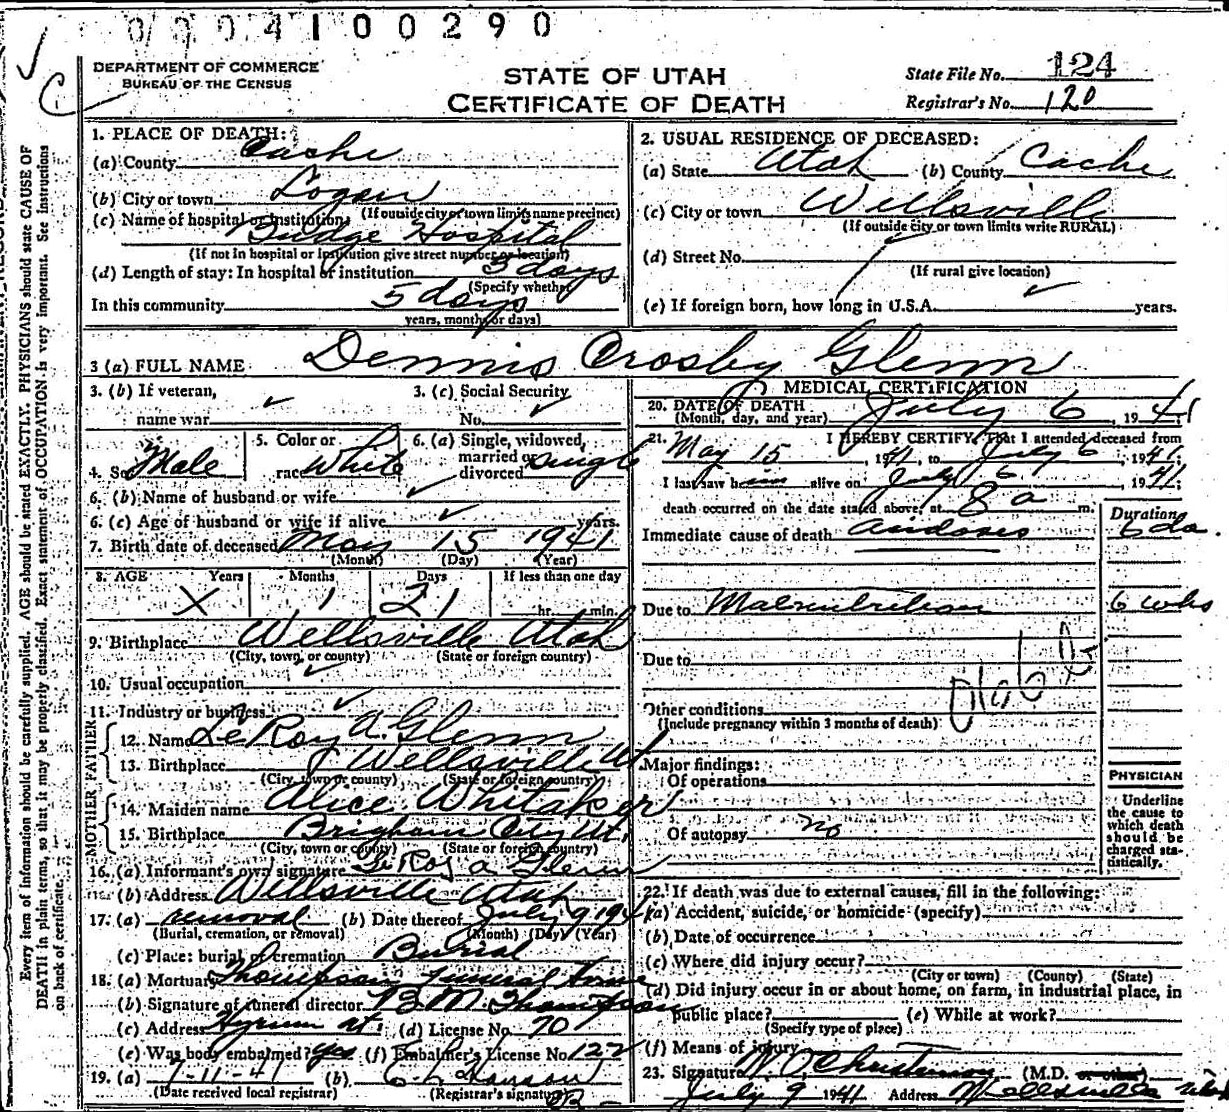 0004100290
DEPARTMENT OF COMMERCE
BUREAU OF THE CENSUS
STATE OF UTAH
CERTIFICATE OF DEATH
State File No. 124
Registrar's No. 120
Every item of information should be carefully supplied. AGE should be stated EXACTLY. PHYSICIANS should state CAUSE OF
DEATH in plain terms, so that it may be properly classified. Exact statement of OCCUPATION is very important. See instructions
on back of certificate.
1. PLACE OF DEATH:
(a) County Cache
(b) City or town Logan
(If outside city or town limits name precinct)
(c) Name of hospital or institution:
Budge Hospital
(If not in hospital or institution give street number or location)
(d) Length of stay: In hospital or institution 3 days
(Specify whether
In this community 5 days
years, months or days)
2. USUAL RESIDENCE OF DECEASED:
(a) State Utah (b) County Cache
(c) City or town Wellsville
(If outside city or town limits write RURAL)
(d) Street No.
(If rural give location)
(e) If foreign born, how long in U.S.A. years.
3 (a) FULL NAME Dennis Crosby Glenn
3. (b) If veteran, name war
3. (c) Social Security No.
4. Sex Male
5. Color or race White
6. (a) Single, widowed, married or divorced single
6. (b) Name of husband or wife
6. (c) Age of husband or wife if alive years.
7. Birth date of deceased May 15 1941
(Month) (Day) (Year)
8. AGE Years Months Days If less than one day
X 1 21 hr. min.
9. Birthplace Wellsville Utah
(City, town, or county) (State or foreign country)
10. Usual occupation
11. Industry or business
FATHER
12. Name LeRoy A. Glenn
13. Birthplace Wellsville Ut
(City, town or county) (State or foreign country)
MOTHER
14. Maiden name Alice Whitaker
15. Birthplace Brigham City Ut.
(City, town or county) (State or foreign country)
16. (a) Informant's own signature Le Roy A Glenn
(b) Address Wellsville Utah
17. (a) removal (b) Date thereof July 9 1941
(Burial, cremation, or removal) (Month) (Day) (Year)
(c) Place: burial of cremation Burial
18. (a) Mortuary Thompson Funeral Home
(b) Signature of funeral director B M Thompson
(c) Address Hyrum Ut. (d) License No. 70
(e) Was body embalmed? yes (f) Embalmer's License No. 122
19. (a) 7-11-41 (b)
(Date received local registrar) (Registrar's signature)
MEDICAL CERTIFICATION
20. DATE OF DEATH July 6 1941
(Month, day, and year)
21. I HEREBY CERTIFY, That I attended deceased from
May 15, 1941, to July 6, 1941;
I last saw him alive on July 6, 1941;
death occurred on the date stated above, at 8 a m.
Duration
Immediate cause of death acidosis 6 da.
Due to Malnutrition 6 wks
Due to
Other conditions
(Include pregnancy within 3 months of death)
Major findings:
Of operations
Of autopsy no
PHYSICIAN
Underline
the cause to
which death
should be
charged sta-
tistically.
22. If death was due to external causes, fill in the following:
(a) Accident, suicide, or homicide (specify)
(b) Date of occurrence
(c) Where did injury occur?
(City or town) (County) (State)
(d) Did injury occur in or about home, on farm, in industrial place, in
public place? (e) While at work?
(Specify type of place)
(f) Means of injury
23. Signature W O Christensen (M.D. or other)
July 9 1941 Address Wellsville Utah